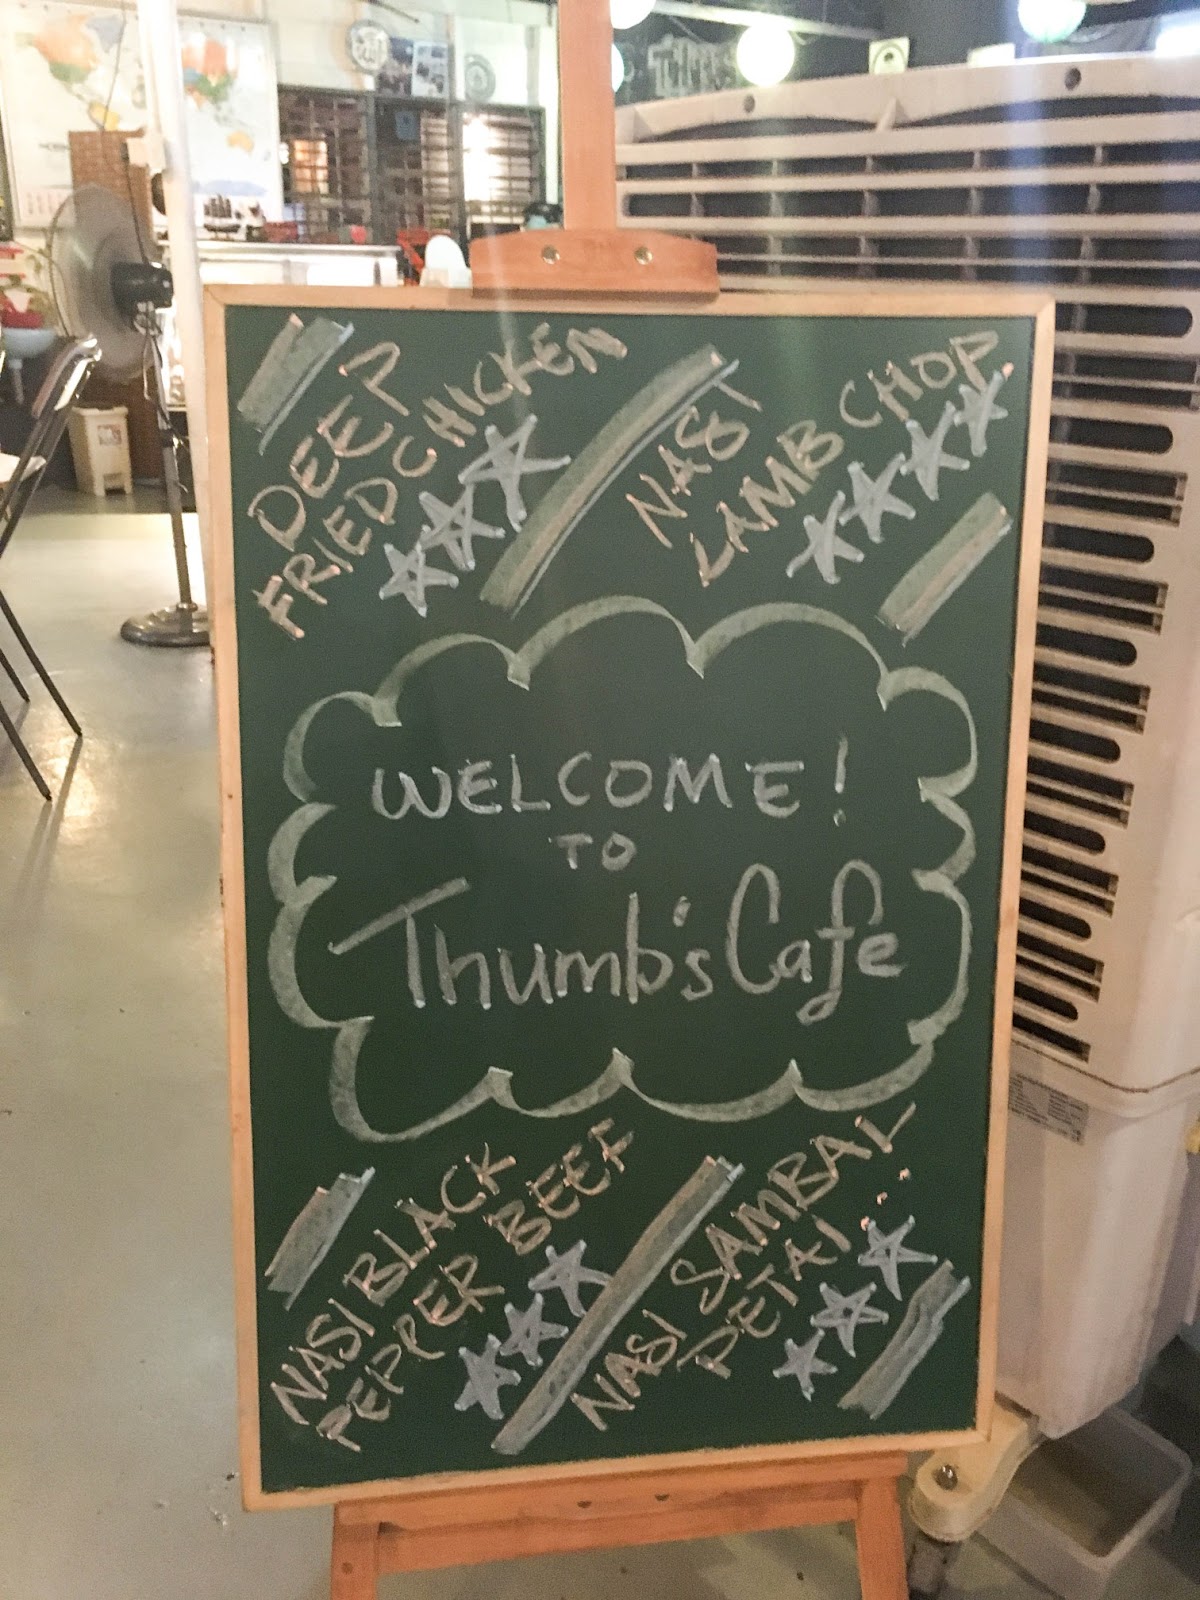 DEEP
FRIED CHICKEN
NASI
LAMB CHOP
WELCOME!
TO
Thumb's Cafe
NASI BLACK
PEPPER BEEF
NASI SAMBAL
PETAI...